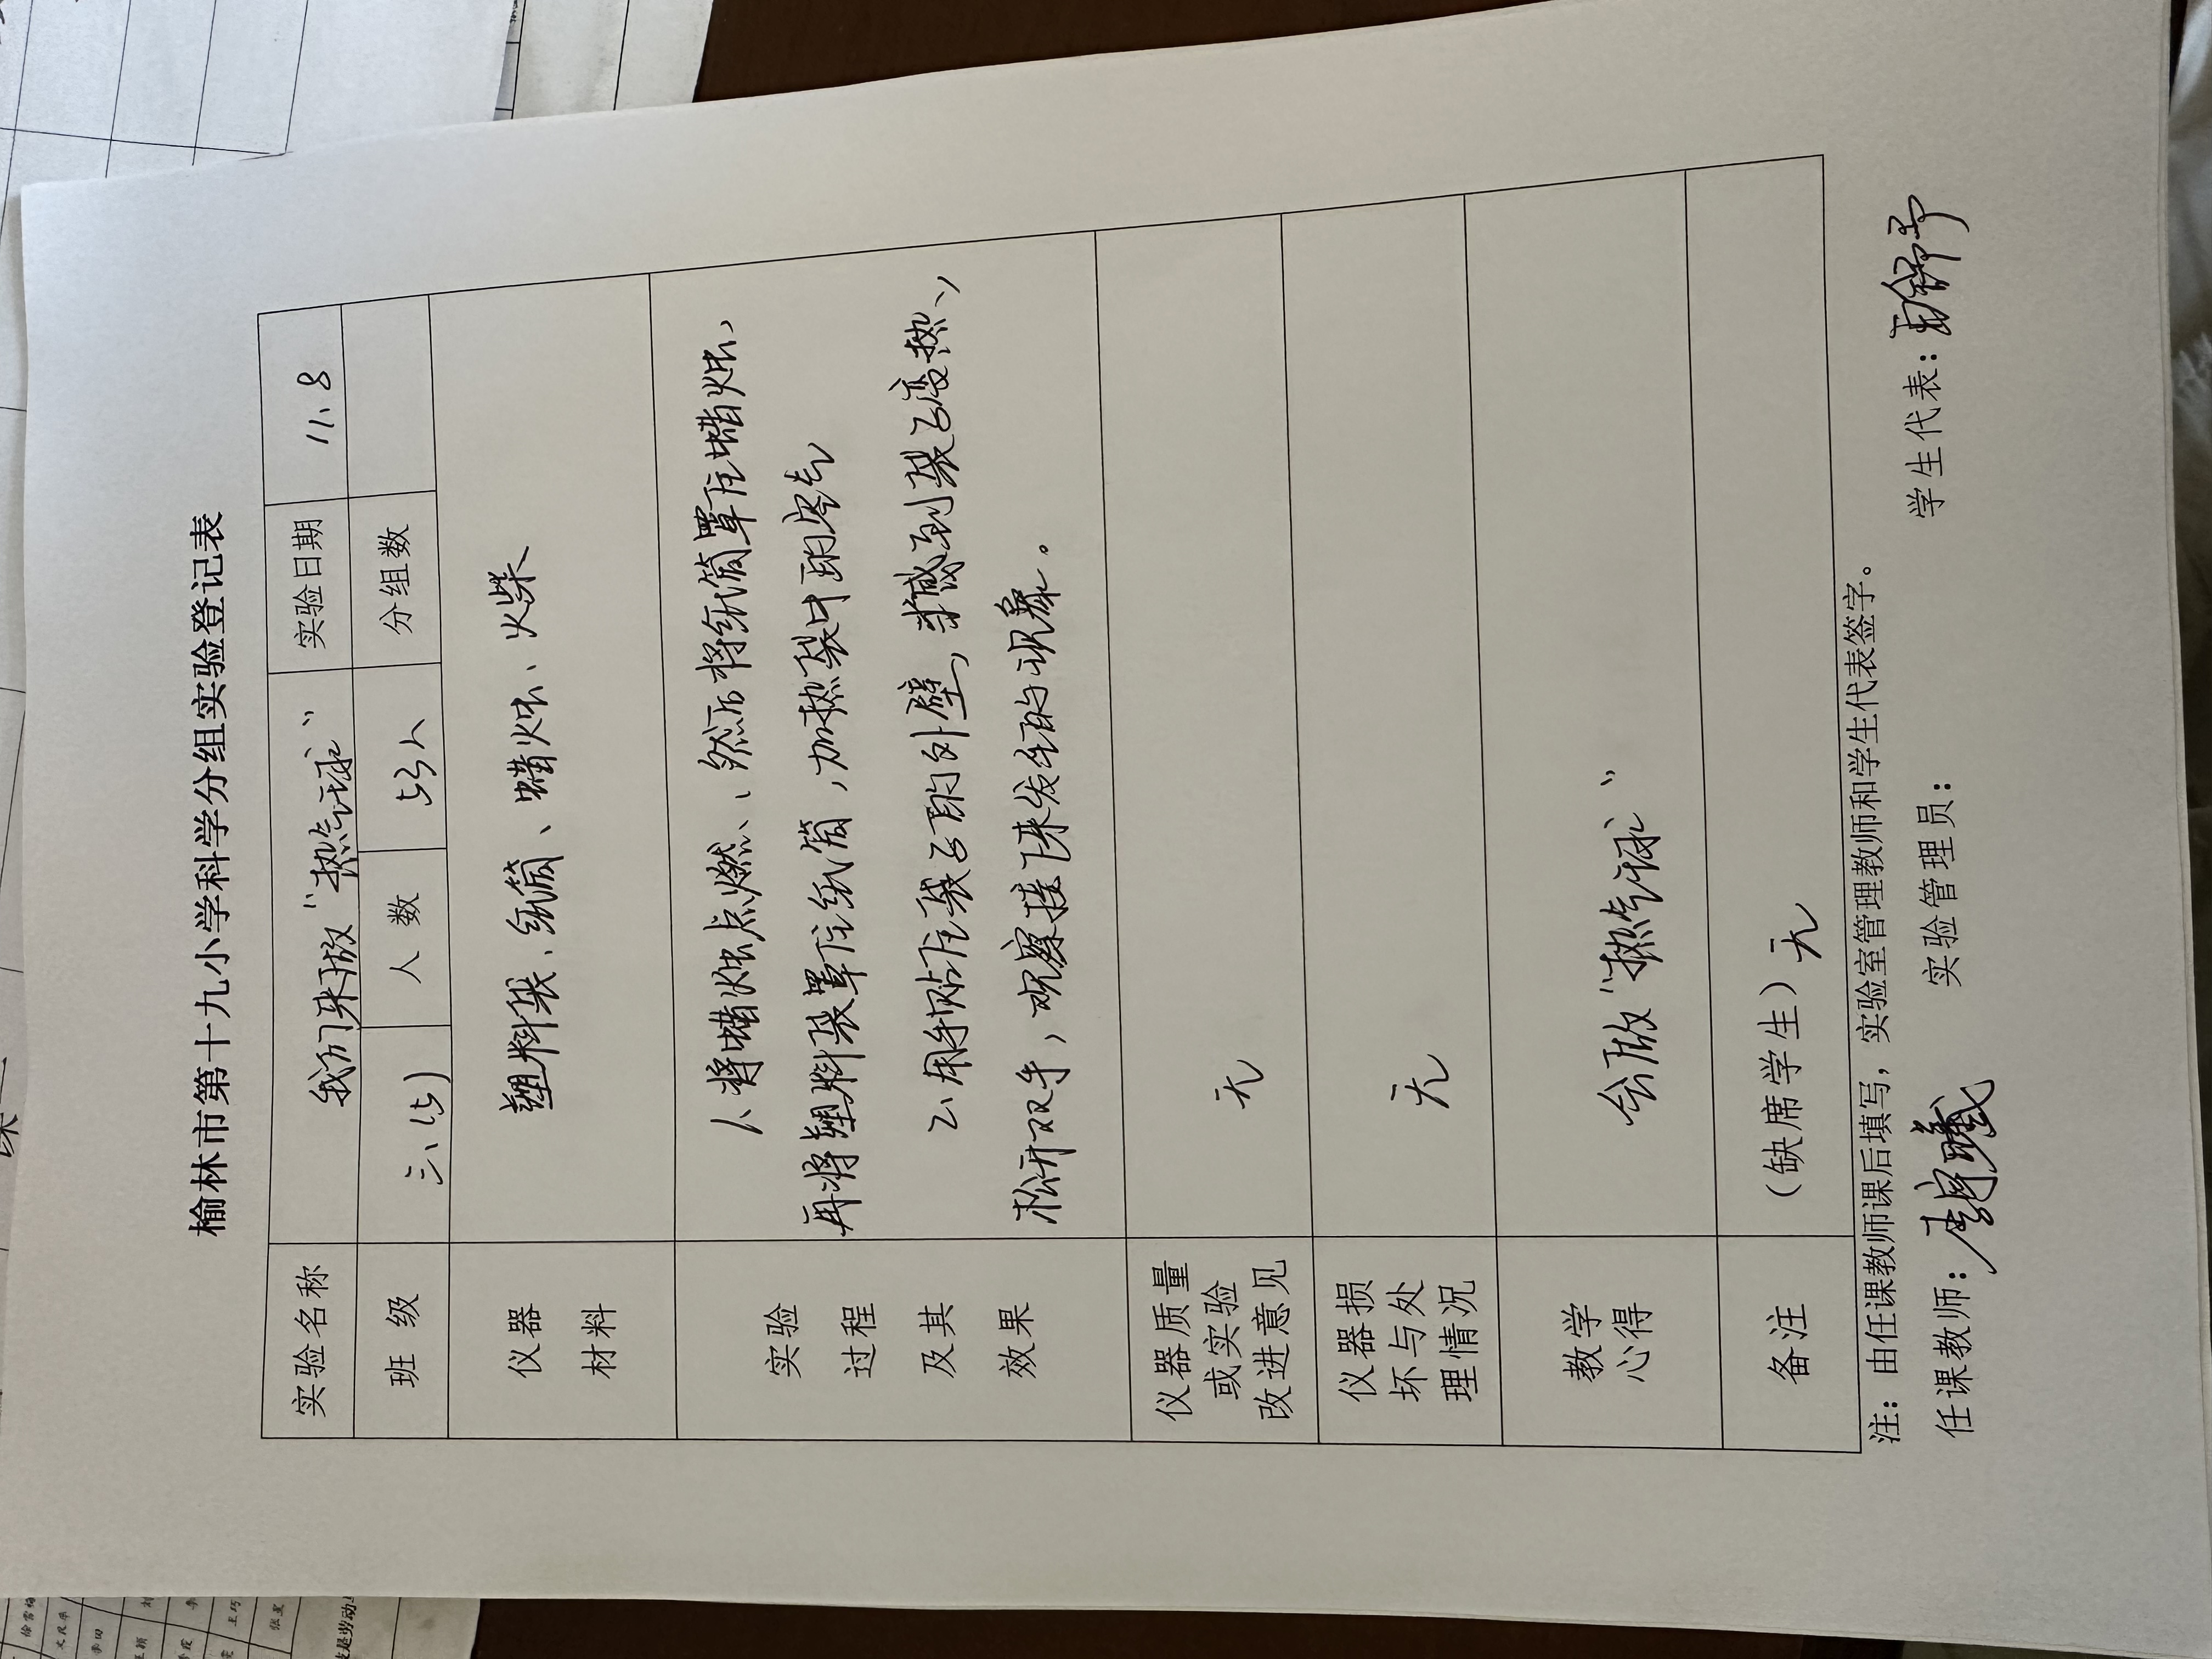 榆林市第十九小学科学分组实验登记表
实验名称 我们来做“热气球” 实验日期 11、8
班 级 三、(5) 人 数 53人 分组数
仪器 材料 塑料袋、纸筒、蜡烛、火柴
实验 过程 及其 效果
1、将蜡烛点燃、然后将纸筒罩住蜡烛、
再将塑料袋罩住纸筒,加热袋中的空气
2、用手贴住袋子的外壁,当感到袋子变热、
松开双手,观察接下来发生的现象。
仪器质量
或实验
改进意见
无
仪器损
坏与处
理情况
无
教学
心得
会做“热气球”
备注 (缺席学生)无
注:由任课教师课后填写,实验室管理教师和学生代表签字。
任课教师: 实验管理员: 学生代表: